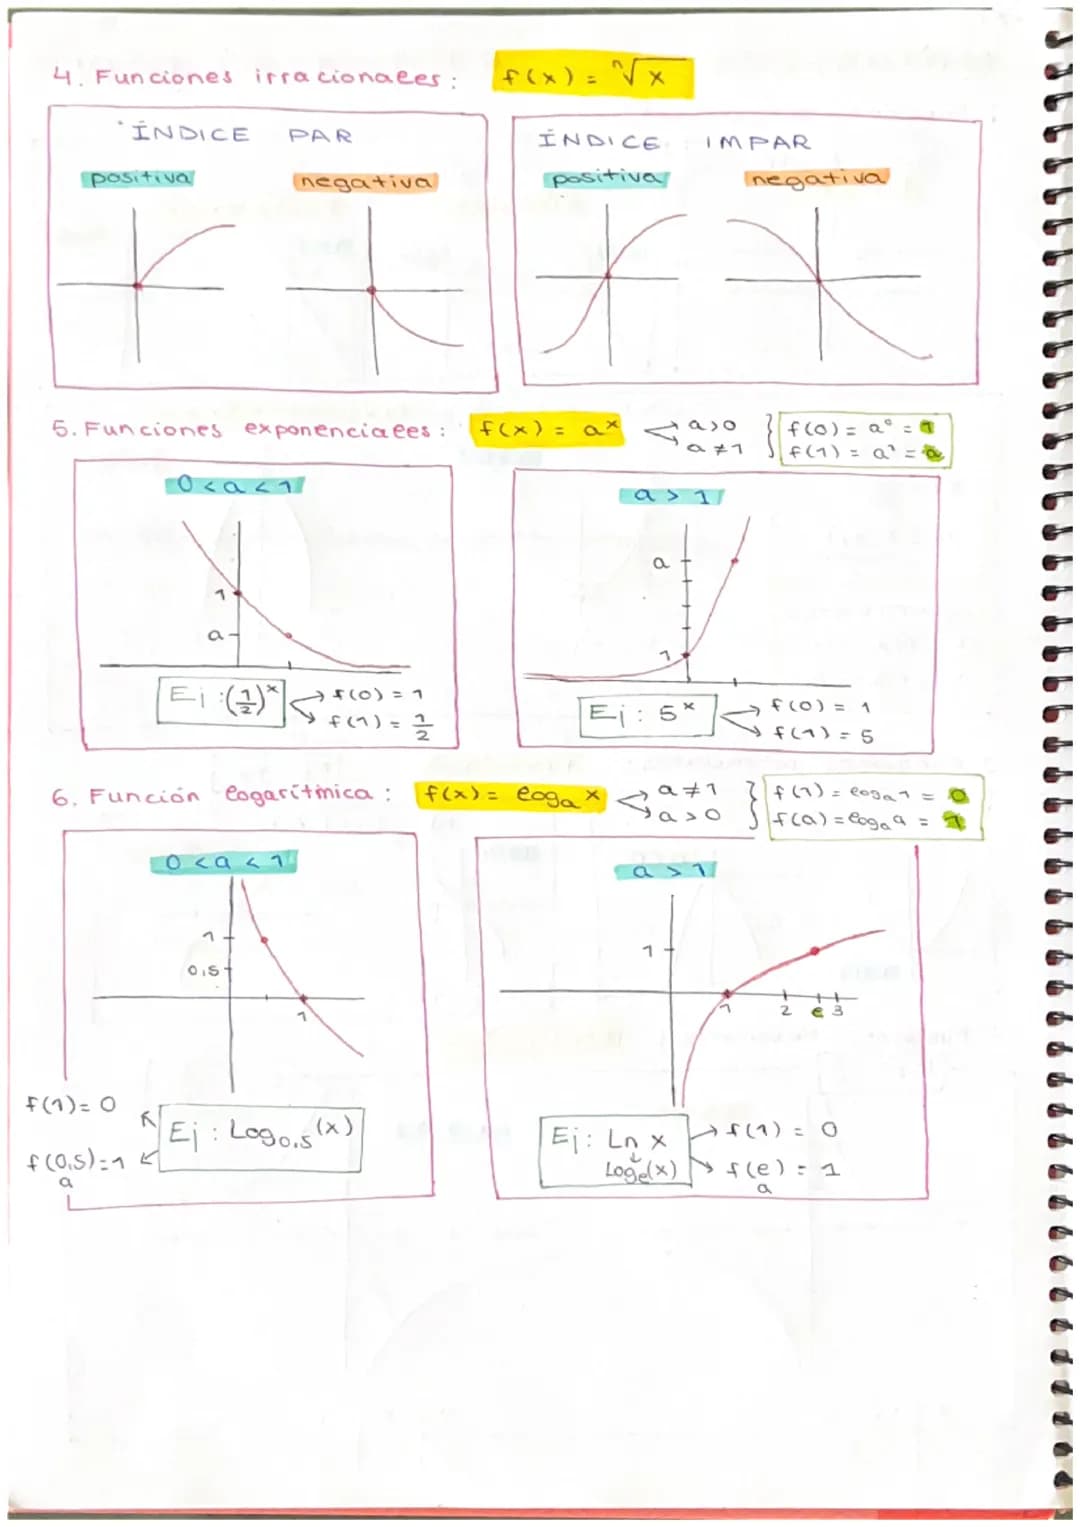 4. Funciones irracionales: f(x) = ⁿ√x
ÍNDICE PAR
positiva negativa
ÍNDICE IMPAR
positiva negativa
5. Funciones exponenciales: f(x) = aˣ → a>0 } f(0) = a⁰ = 1
→ a≠1 f(1) = a¹ = a
0<a<1
1
a
Ej: (1/2)ˣ → f(0) = 1
→ f(1) = 1/2
a > 1
a
1
Ej: 5ˣ → f(0) = 1
→ f(1) = 5
6. Función logarítmica: f(x) = logₐ x → a≠1 } f(1) = logₐ1 = 0
→ a>0 f(a) = logₐa = 1
0<a<1
1
0,5
1
f(1)=0
f(0,5)=1
a
Ej: Log₀,₅(x)
a > 1
1
1 2 e 3
Ej: Ln x → f(1) = 0
↓
Logₑ(x) → f(e) = 1
a